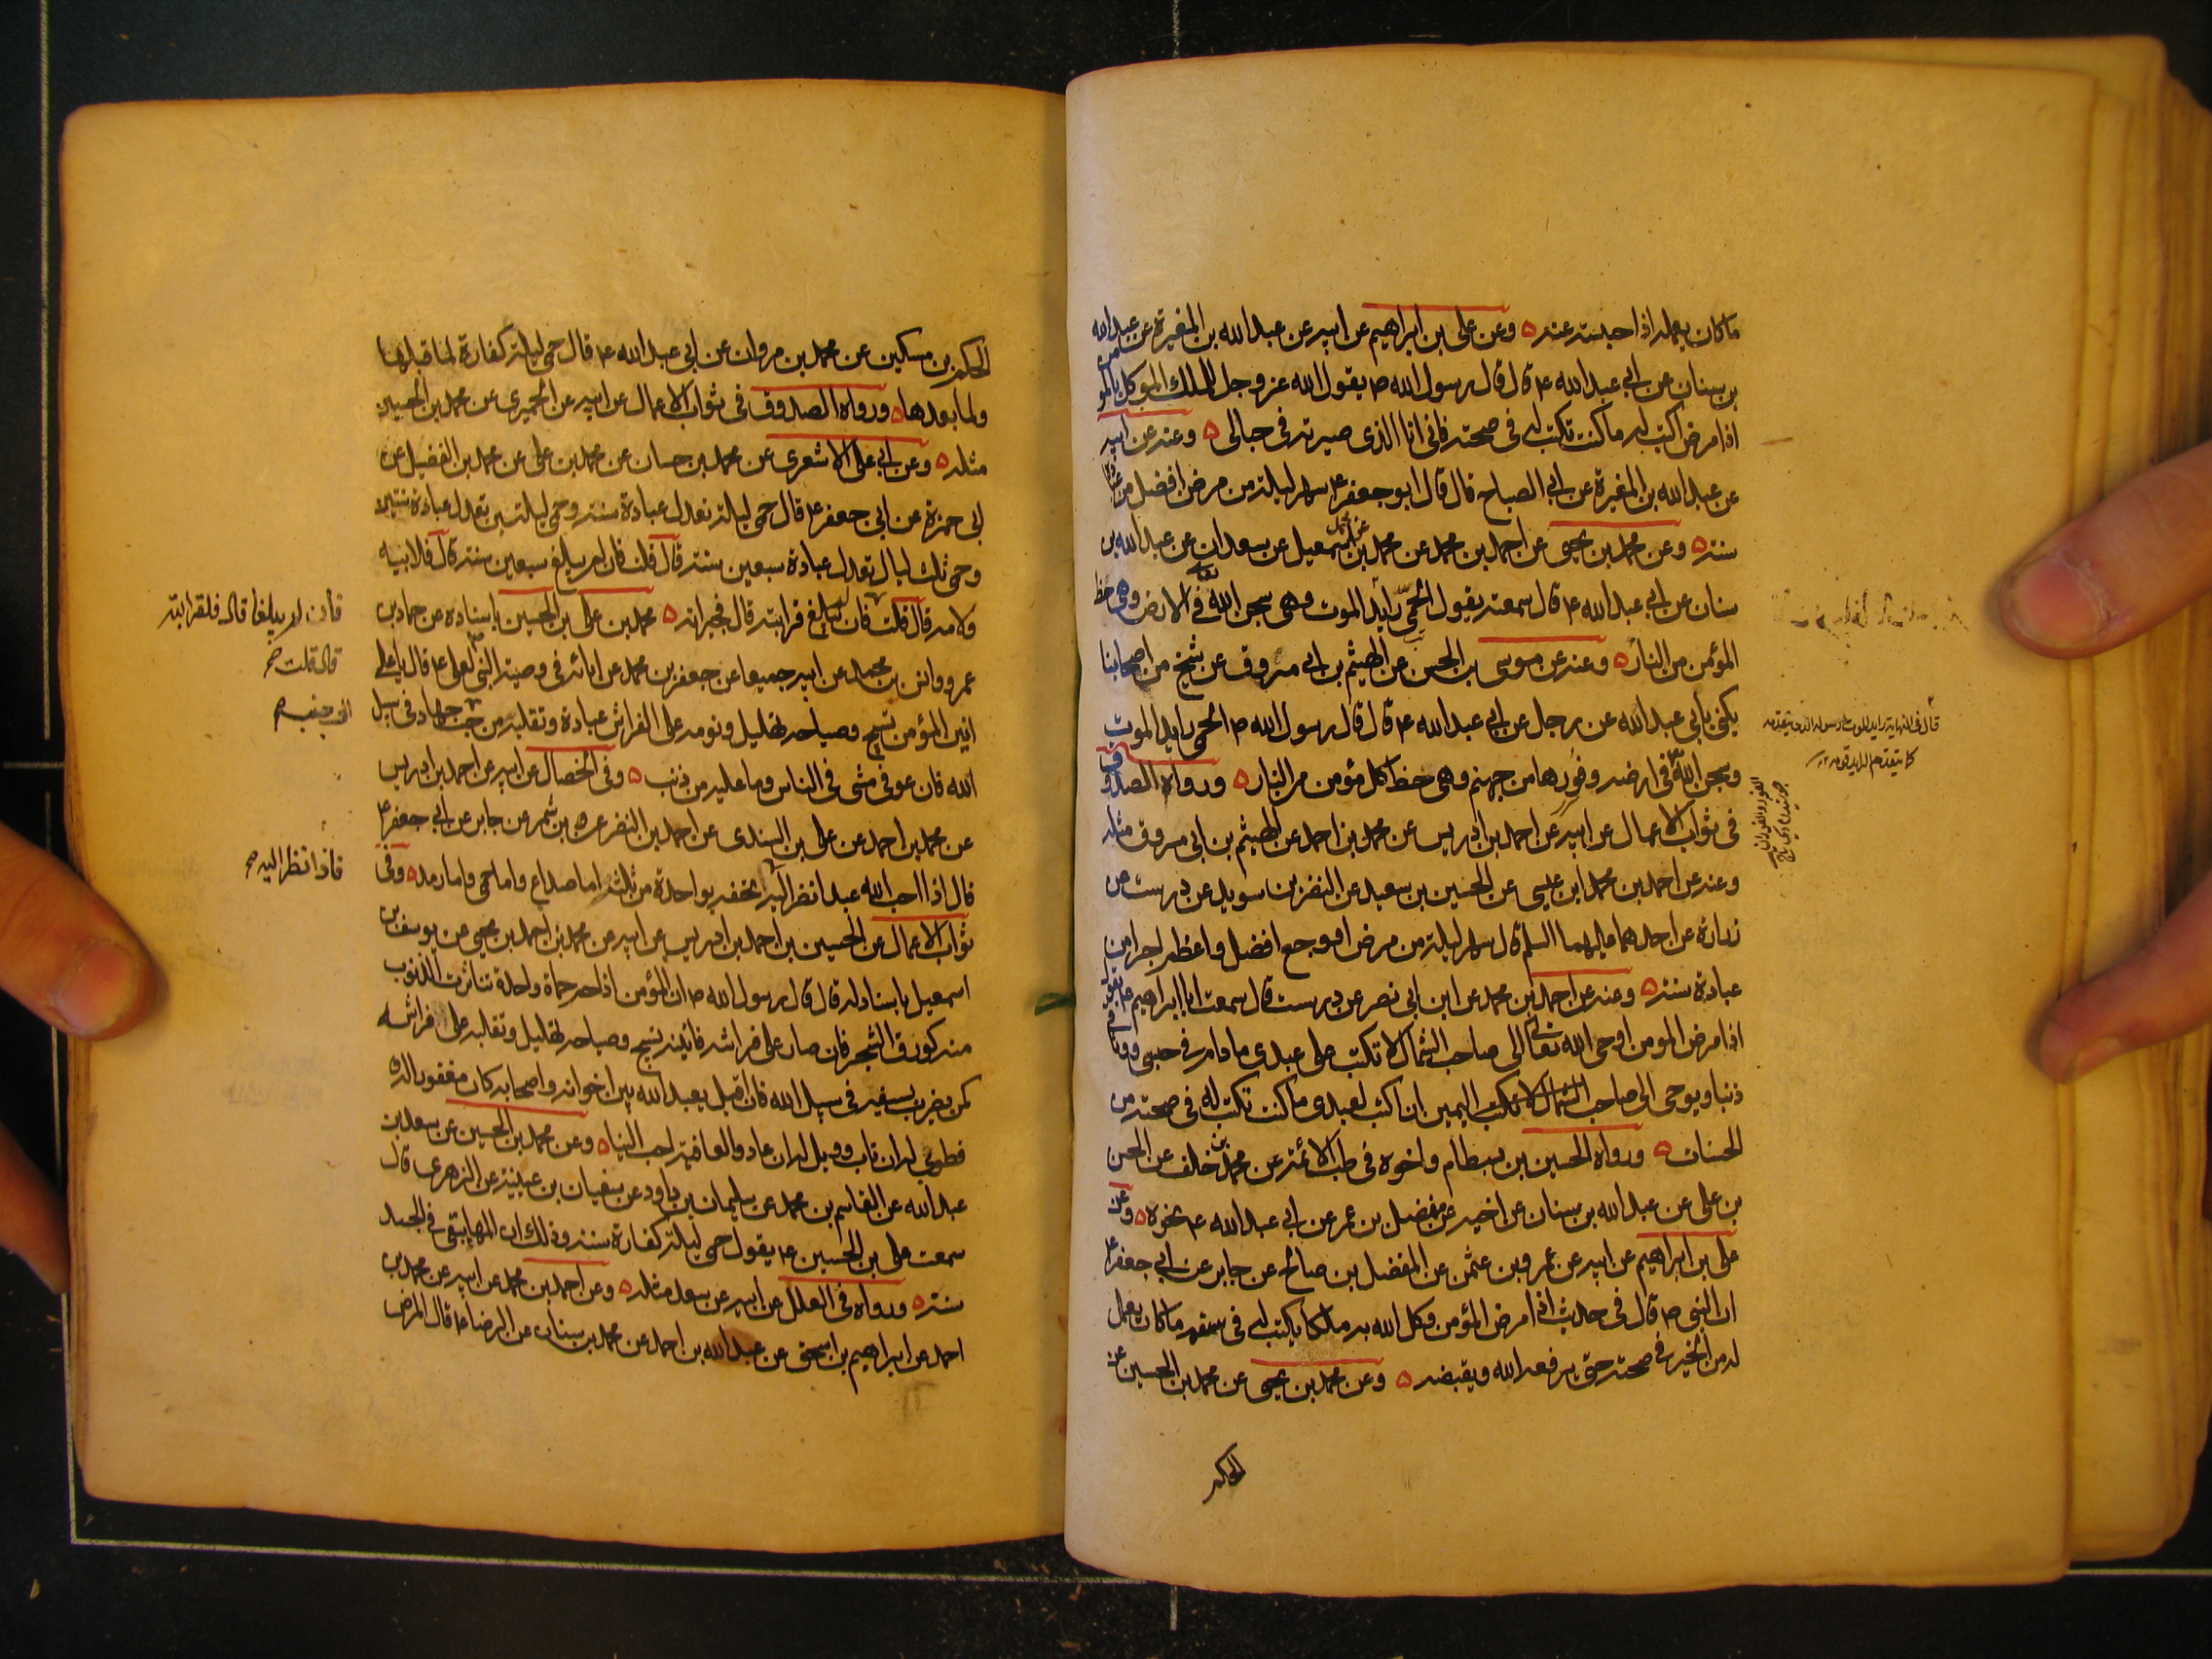 ما كان يعمله اذا حبسته عنه ه وعن علي بن ابراهيم عن ابيه عن عبد الله بن المغيرة عن عبد الله
بن سنان عن ابي عبد الله ع قال قال رسول الله ص يقول الله عز وجل للملك الموكل بالمؤمن
اذا مرض اكتب له ما كنت تكتب له في صحته فاني انا الذي صيرته في حبالي ه وعنه عن ابيه
عن عبد الله بن المغيرة عن ابي الصباح قال قال ابو جعفر ع سهر ليلة من مرض افضل من عبادة
سنة ه وعن محمد بن يحيى عن احمد بن محمد عن محمد بن اسمعيل عن سعدان عن عبد الله بن
سنان عن ابي عبد الله ع قال سمعته يقول الحمى رايد الموت وهي سجن الله في الارض وهي حظ
المؤمن من النار ه وعنه عن موسى بن الحسن عن الهيثم بن ابي مسروق عن شيخ من اصحابنا
يكنى بابي عبد الله عن رجل عن ابي عبد الله ع قال قال رسول الله ص الحمى رايد الموت
وسجن الله في ارضه وفورها من جهنم وهي حظ كل مؤمن من النار ه ورواه الصدوق
في ثواب الاعمال عن ابيه عن احمد بن ادريس عن محمد بن احمد عن الهيثم بن ابي مسروق مثله
وعنه عن احمد بن محمد ابن عيسى عن الحسين بن سعيد عن النضر بن سويد عن درست عن
زرارة عن احدهما عليهما السلم قال سهر ليلة من مرض او وجع افضل واعظم اجرا من
عبادة سنة ه وعنه عن احمد بن محمد عن ابن ابي نصر عن درست قال سمعت ابا ابراهيم ع يقول
اذا مرض المومن اوحى الله تعالى الى صاحب الشمال لا تكتب على عبدي ما دام في حبسي ووثاقي
ذنبا ويوحي الى صاحب اليمين ان اكتب لعبدي ما كنت تكتب له في صحته من
الحسنات ه ورواه الحسين بن بسطام واخوه في طب الائمة عن محمد بن خلف عن الحسن
بن علي عن عبد الله بن سنان عن اخيه عن مفضل بن عمر عن ابي عبد الله ع نحوه ه وعن
علي بن ابراهيم عن ابيه عن عمرو بن عثمن عن المفضل بن صالح عن جابر عن ابي جعفر ع
ان النبي ص قال في حديث اذا مرض المؤمن وكل الله به ملكا يكتب له في سقمه ما كان يعمل
له من الخير في صحته حتى يرفعه الله ويقبضه ه وعن محمد بن يحيى عن محمد بن الحسين عن
الحكم
الحكم بن مسكين عن محمد بن مروان عن ابي عبد الله ع قال حمى ليلة كفارة لما قبلها
ولما بعدها ه ورواه الصدوق في ثواب الاعمال عن ابيه عن الحميري عن محمد بن الحسين
مثله ه وعن ابي علي الاشعري عن محمد بن حسان عن محمد بن علي عن محمد بن الفضيل عن
ابي حمزة عن ابي جعفر ع قال حمى ليلة تعدل عبادة سنة وحمى ليلتين تعدل عبادة سنتين
وحمى ثلث ليال تعدل عبادة سبعين سنة قال قلت فان لم يبلغ سبعين سنة قال فلابيه
ولامه قال قلت فان لم يبلغ قرابته قال فجيرانه ه محمد بن علي بن الحسين باسناده عن حماد بن
عمرو وانس بن محمد عن ابيه جميعا عن جعفر بن محمد عن ابائه في وصية النبي لعلي ع قال يا علي
انين المؤمن تسبيح وصياحه تهليل ونومه على الفراش عبادة وتقلبه من جنب جهاد في سبيل
الله فان عوفي مشى في الناس وما عليه من ذنب ه وفي الخصال عن ابيه عن احمد بن ادريس
عن محمد بن احمد عن علي بن السندي عن احمد بن النضر عن عمرو بن شمر عن جابر عن ابي جعفر ع
قال اذا احب الله عبدا نظر اليه اتحفه بواحدة من ثلثة اما صداع واما حمى واما رمد ه وفي
ثواب الاعمال عن الحسين بن احمد بن ادريس عن ابيه عن محمد بن احمد بن يحيى عن يوسف بن
اسمعيل باسناد له قال قال رسول الله ص ان المؤمن اذا حم حماة واحدة تناثرت الذنوب
منه كورق الشجر فان صار على فراشه فانينه تسبيح وصياحه تهليل وتقلبه على فراشه
كمن يضرب بسيفه في سبيل الله فان اقبل يعبد الله بين اخوانه واصحابه كان مغفورا له
فطوبى له ان تاب وويل له ان عاد والعافية احب الينا ه وعن محمد بن الحسين عن سعد بن
عبد الله عن القاسم بن محمد عن سليمان بن داود عن سفيان بن عيينة عن الزهري قال
سمعت علي بن الحسين ع يقول حمى ليلة كفارة سنة وذلك ان المها يبقى في الجسد
سنة ه ورواه في العلل عن ابيه عن سعد مثله ه وعن احمد بن محمد عن ابيه عن محمد بن
احمد عن ابراهيم بن اسحق عن عبد الله بن احمد عن محمد بن سنان عن الرضا ع قال المرض
فان لم يبلغا قال فلقرابته
قال قلت صح
الى جنب صح
فاذا نظر اليه صح